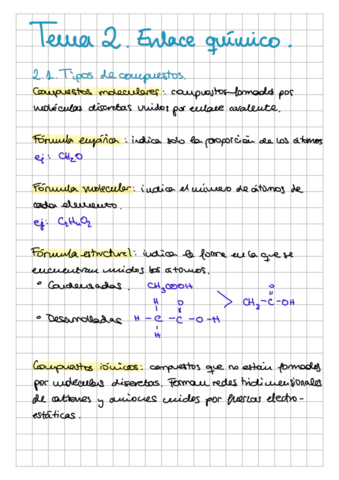 Tema 2. Enlace químico.
2.1. Tipos de compuestos.
Compuestos moleculares: compuestos formados por
moléculas discretas unidos por enlace covalente.
Fórmula empírica: indica solo la proporción de los átomos
ej: CH2O
Fórmula molecular: indica el número de átomos de
cada elemento.
ej: C2H4O2
Fórmula estructural: indica la forme en la que se
encuentran unidos los átomos.
• Condensadas. CH3COOH
• Desarrolladas H - C - C - O - H
H
O
H
CH2 - C - OH
O
Compuestos iónicos: compuestos que no están formados
por moléculas discretas. Forman redes tridimensionales
de cationes y aniones unidos por fuerzas electro-
estáticas.